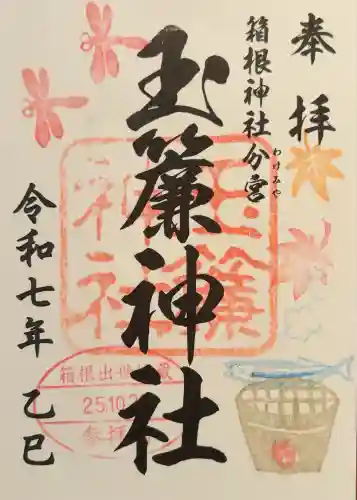 奉拝
箱根神社分営
わけみや
玉簾神社
令和七年 乙巳
玉簾神社
箱根出世
25.10.2
参拝